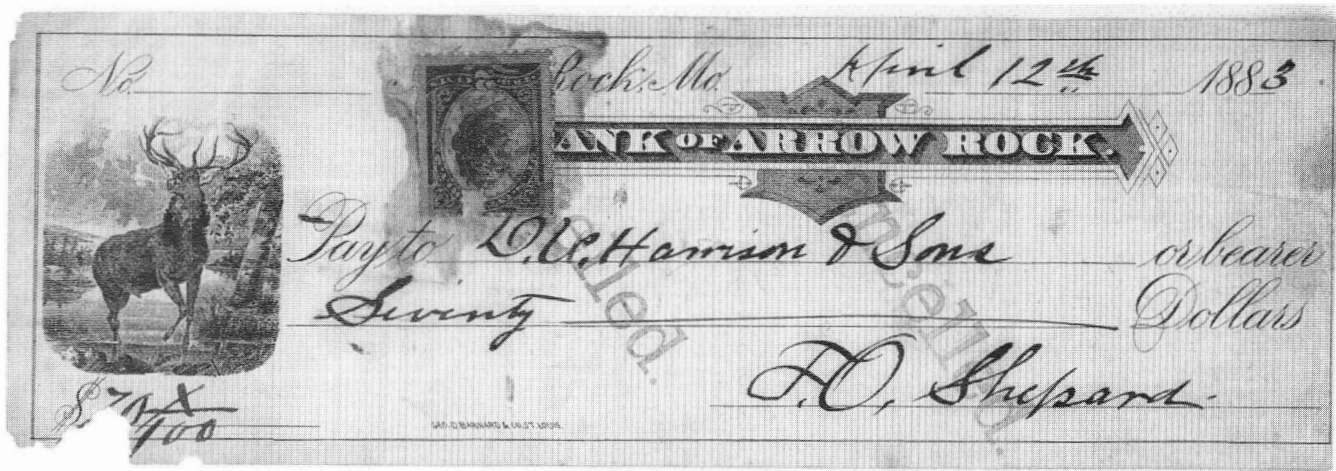 No. Rock, Mo. April 12th 1883
BANK OF ARROW ROCK.
Pay to D. C. Harrison & Sons or bearer
Seventy Dollars
F. O. Shepard.
$ 70 X/100
GEO. D. BARNARD & CO. ST. LOUIS.
celled.
ncelled